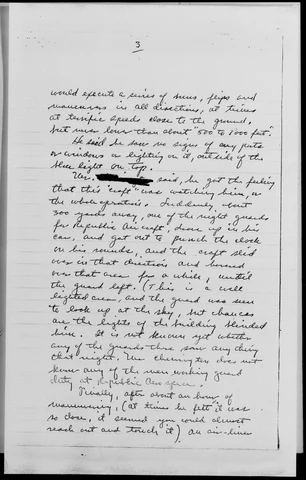 3
would execute a series of turns, flips and
maneuvers in all directions, at times
at terrific speeds close to the ground,
but never lower than about "500 to 1000 feet".
He said he saw no signs of any ports
or windows or lighting on it, outside of the
blue light on top.
Mr. said, he got the feeling
that this "craft" was watching him, or
the whole operation. Suddenly, about
300 yards away, one of the night guards
for Republic Aircraft, drove up in his
car, and got out to punch the clock
on his rounds, and the craft slid
over in that direction and hovered
over that area for a while, until
the guard left. (This is a well
lighted area, and the guard was seen
to look up at the sky, but chances
are the lights of the building blinded
him. It is not known yet whether
any of the guards there saw anything
that night. does not
know any of the men working guard
duty at Republic
Finally, after about an hour of
maneuvering, (at times he felt it was
so close, it seemed you could almost
reach out and touch it) an air-liner